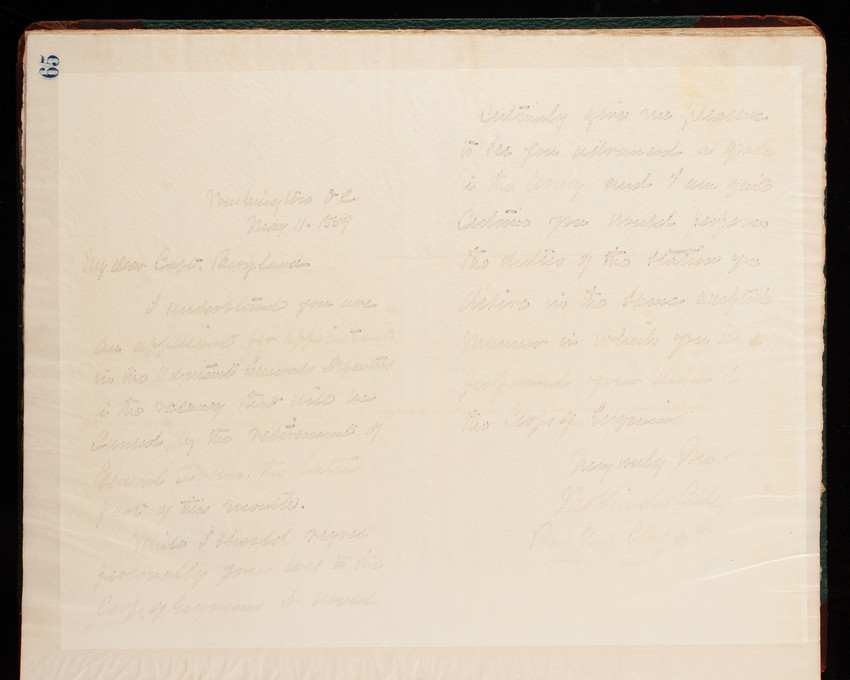 65
Washington D.C.
May 11. 1889
My dear Capt. Bergland
I understand you are
an applicant for appointment
in the Adjutant Generals Department
in the vacancy that will be
caused by the retirement of
General the latter
part of this month.
While I should regret
personally your loss to the
Corps of Engineers it would
certainly give me pleasure
to see you advanced a grade
in the Army and I am quite
certain you would perform
the duties of the station you
desire in the same acceptable
manner in which you have
performed your duties in
the Corps of Engineers
Very truly